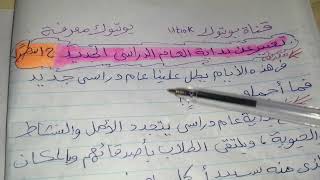 قناة يوتوك utook يوتوك معرفة
تعبير عن بداية العام الدراسي الجديد
في هذه الأيام يطل علينا عام دراسي جديد
فما أجمله
بداية عام دراسي يتجدد الأمل والنشاط
الحيوية، ويلتقي الطلاب بأصدقائهم والمكان
الذي منه